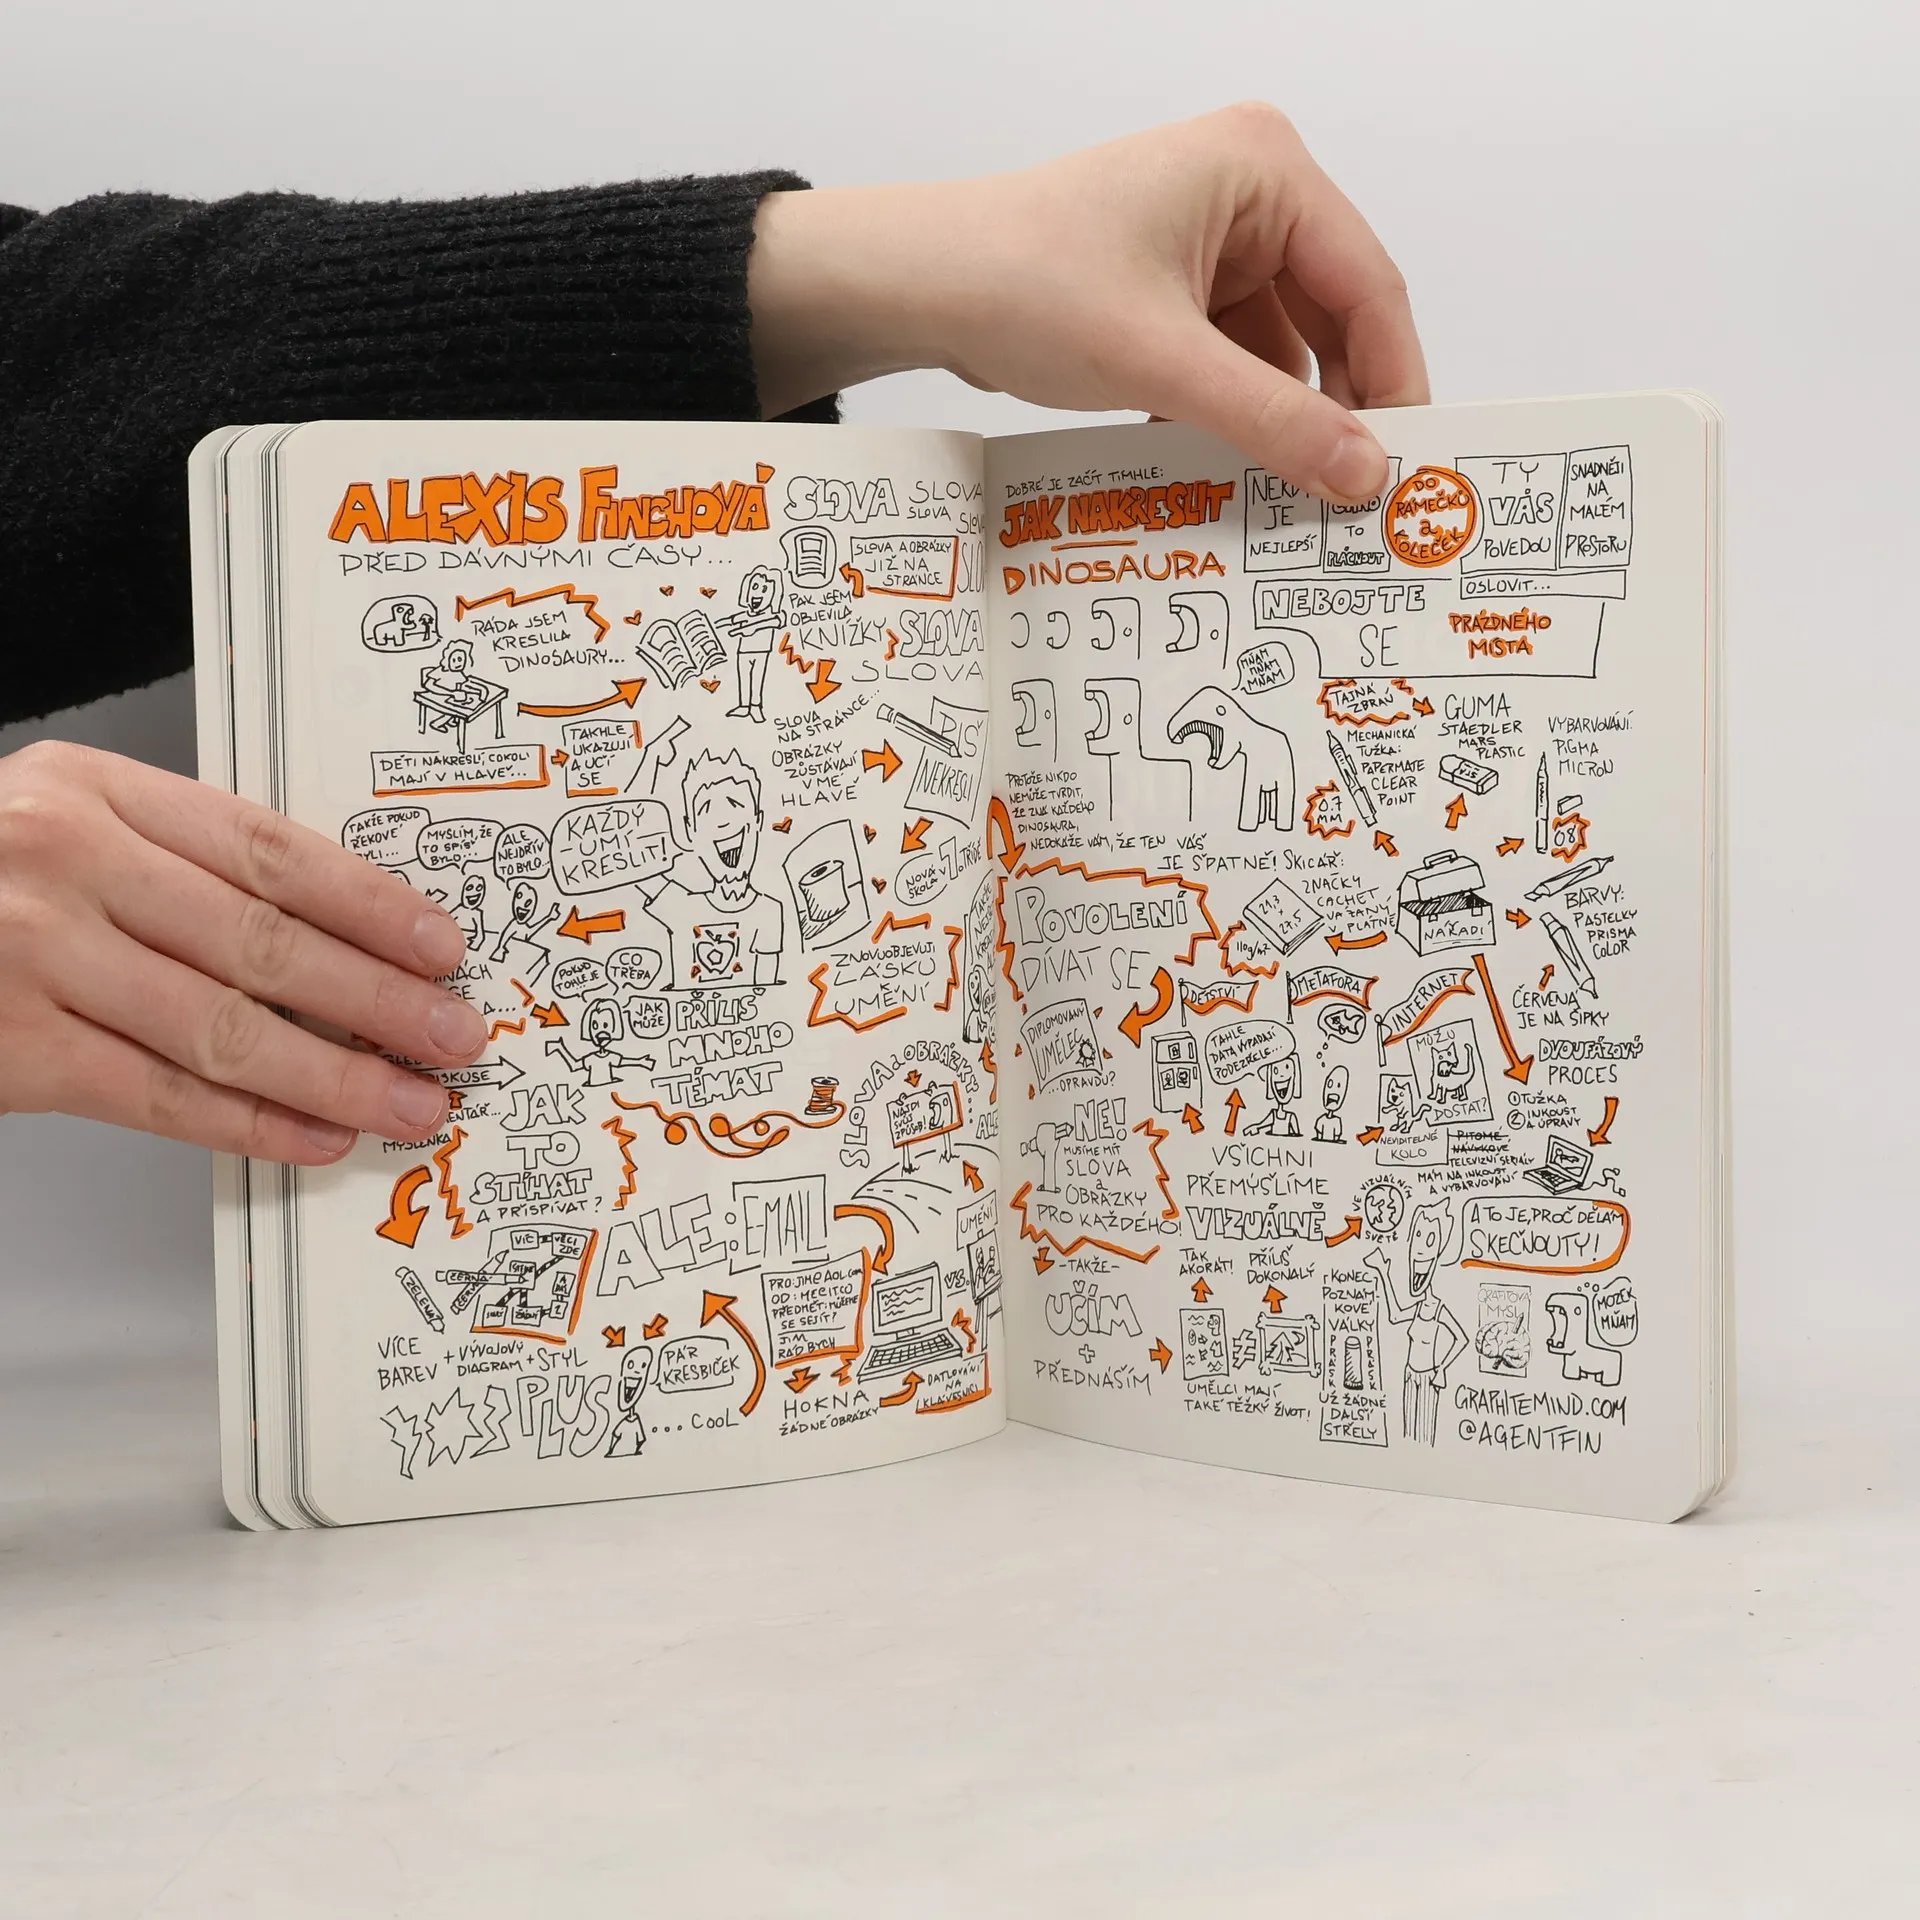 ALEXIS FINCHOVÁ
PŘED DÁVNÝMI ČASY...
SLOVA
SLOVA
SLOVA
RÁDA JSEM
KRESLILA
DINOSAURY...
DĚTI NAKRESLÍ, COKOLI
MAJÍ V HLAVĚ...
TAKHLE
UKAZUJÍ
A UČÍ
SE
PAK JSEM
OBJEVILA
KNÍŽKY
SLOVA A OBRÁZKY
JIŽ NA
STRÁNCE
SLOVA
SLOVA
SLOVA
NA STRÁNCE...
OBRÁZKY
ZŮSTÁVAJÍ
V MÉ
HLAVĚ
PIŠ
NEKRESLI
NOVÁ
ŠKOLA V 7. TŘÍDĚ
ZNOVUOBJEVUJI
LÁSKU
K
UMĚNÍ
KAŽDÝ
UMÍ
KRESLIT!
TAKŽE POKUD
ŘEKOVÉ
BYLI...
MYSLÍM, ŽE
TO SPÍŠ
BYLO...
ALE
NEJDŘÍV
TO BYLO...
POKUD
TOHLE JE
CO
TŘEBA
JAK
MŮŽE
PŘÍLIŠ
MNOHO
TÉMAT
MYŠLENKA
JAK
TO
STÍHAT
A PŘISPÍVAT?
SLOVA a OBRÁZKY
NAJDI
SVŮJ
ZPŮSOB!
ALE: EMAIL
PRO: JIM@AOL.COM
OD: MECITKO
PŘEDMĚT: MŮŽEME
SE SEJÍT?
JIM
RÁD BYCH
UMĚNÍ
VS.
DATLOVÁNÍ
NA
KLÁVESNICI
HOKNA
ŽÁDNÉ OBRÁZKY
ZELENÁ
ČERNÁ
ČERVENÁ
VÍC
VĚCI
ZDE
VÍCE
BAREV + VÝVOJOVÝ
DIAGRAM + STYL
PLUS
PÁR
KRESBIČEK
...COOL
DOBRÉ JE ZAČÍT TÍMHLE:
JAK NAKRESLIT
DINOSAURA
JE
NEJLEPŠÍ
TO
PLÁCNOUT
DO
RÁMEČKŮ
a
KOLEČEK
TY
VÁS
POVEDOU
SNADNĚJI
NA
MALÉM
PROSTORU
NEBOJTE
SE
OSLOVIT...
PRÁZDNÉHO
MÍSTA
MŇAM
MŇAM
MŇAM
PROTOŽE NIKDO
NEMŮŽE TVRDIT,
ŽE ZNÁ KAŽDÉHO
DINOSAURA,
NEDOKÁŽE VÁM, ŽE TEN VÁŠ
JE ŠPATNĚ!
TAJNÁ
ZBRAŇ
MECHANICKÁ
TUŽKA:
PAPERMATE
CLEAR
POINT
0.7
MM
GUMA
STAEDLER
MARS
PLASTIC
VYBARVOVÁNÍ:
PIGMA
MICRON
08
SKICÁŘ:
ZNAČKY
CACHET
VÁZANÝ
V PLÁTNĚ
21,3
x
27,5
110g/m2
NÁŘADÍ
BARVY:
PASTELKY
PRISMA
COLOR
ČERVENÁ
JE NA ŠIPKY
DVOUFÁZOVÝ
PROCES
① TUŽKA
② INKOUST
A ÚPRAVY
POVOLENÍ
DÍVAT SE
DIPLOMOVANÝ
UMĚLEC
...OPRAVDU?
NE!
MUSÍME MÍT
SLOVA
a
OBRÁZKY
PRO KAŽDÉHO!
DĚTSTVÍ
METAFORA
INTERNET
TAHLE
DATA VYPADAJÍ
PODEZŘELE...
MŮŽU
DOSTAT?
NEVIDITELNÉ
KOLO
PITOMÉ,
NÁVYKOVÉ
TELEVIZNÍ SERIÁLY
MÁM NA INKOUST
A VYBARVOVÁNÍ
VŠICHNI
PŘEMÝŠLÍME
VIZUÁLNĚ
VE VIZUÁLNÍM
SVĚTĚ
A TO JE, PROČ DĚLÁM
SKEČNOUTY!
-TAKŽE-
UČÍM
+
PŘEDNÁŠÍM
TAK
AKORÁT!
PŘÍLIŠ
DOKONALÝ
UMĚLCI MAJÍ
TAKÉ TĚŽKÝ ŽIVOT!
KONEC
POZNÁM-
KOVÉ
VÁLKY
PRÁSK
PRÁSK
UŽ ŽÁDNÉ
DALŠÍ
STŘELY
GRAFITOVÁ
MYSL
MOZEK
MŇAM
GRAPHITEMIND.COM
@AGENTFIN